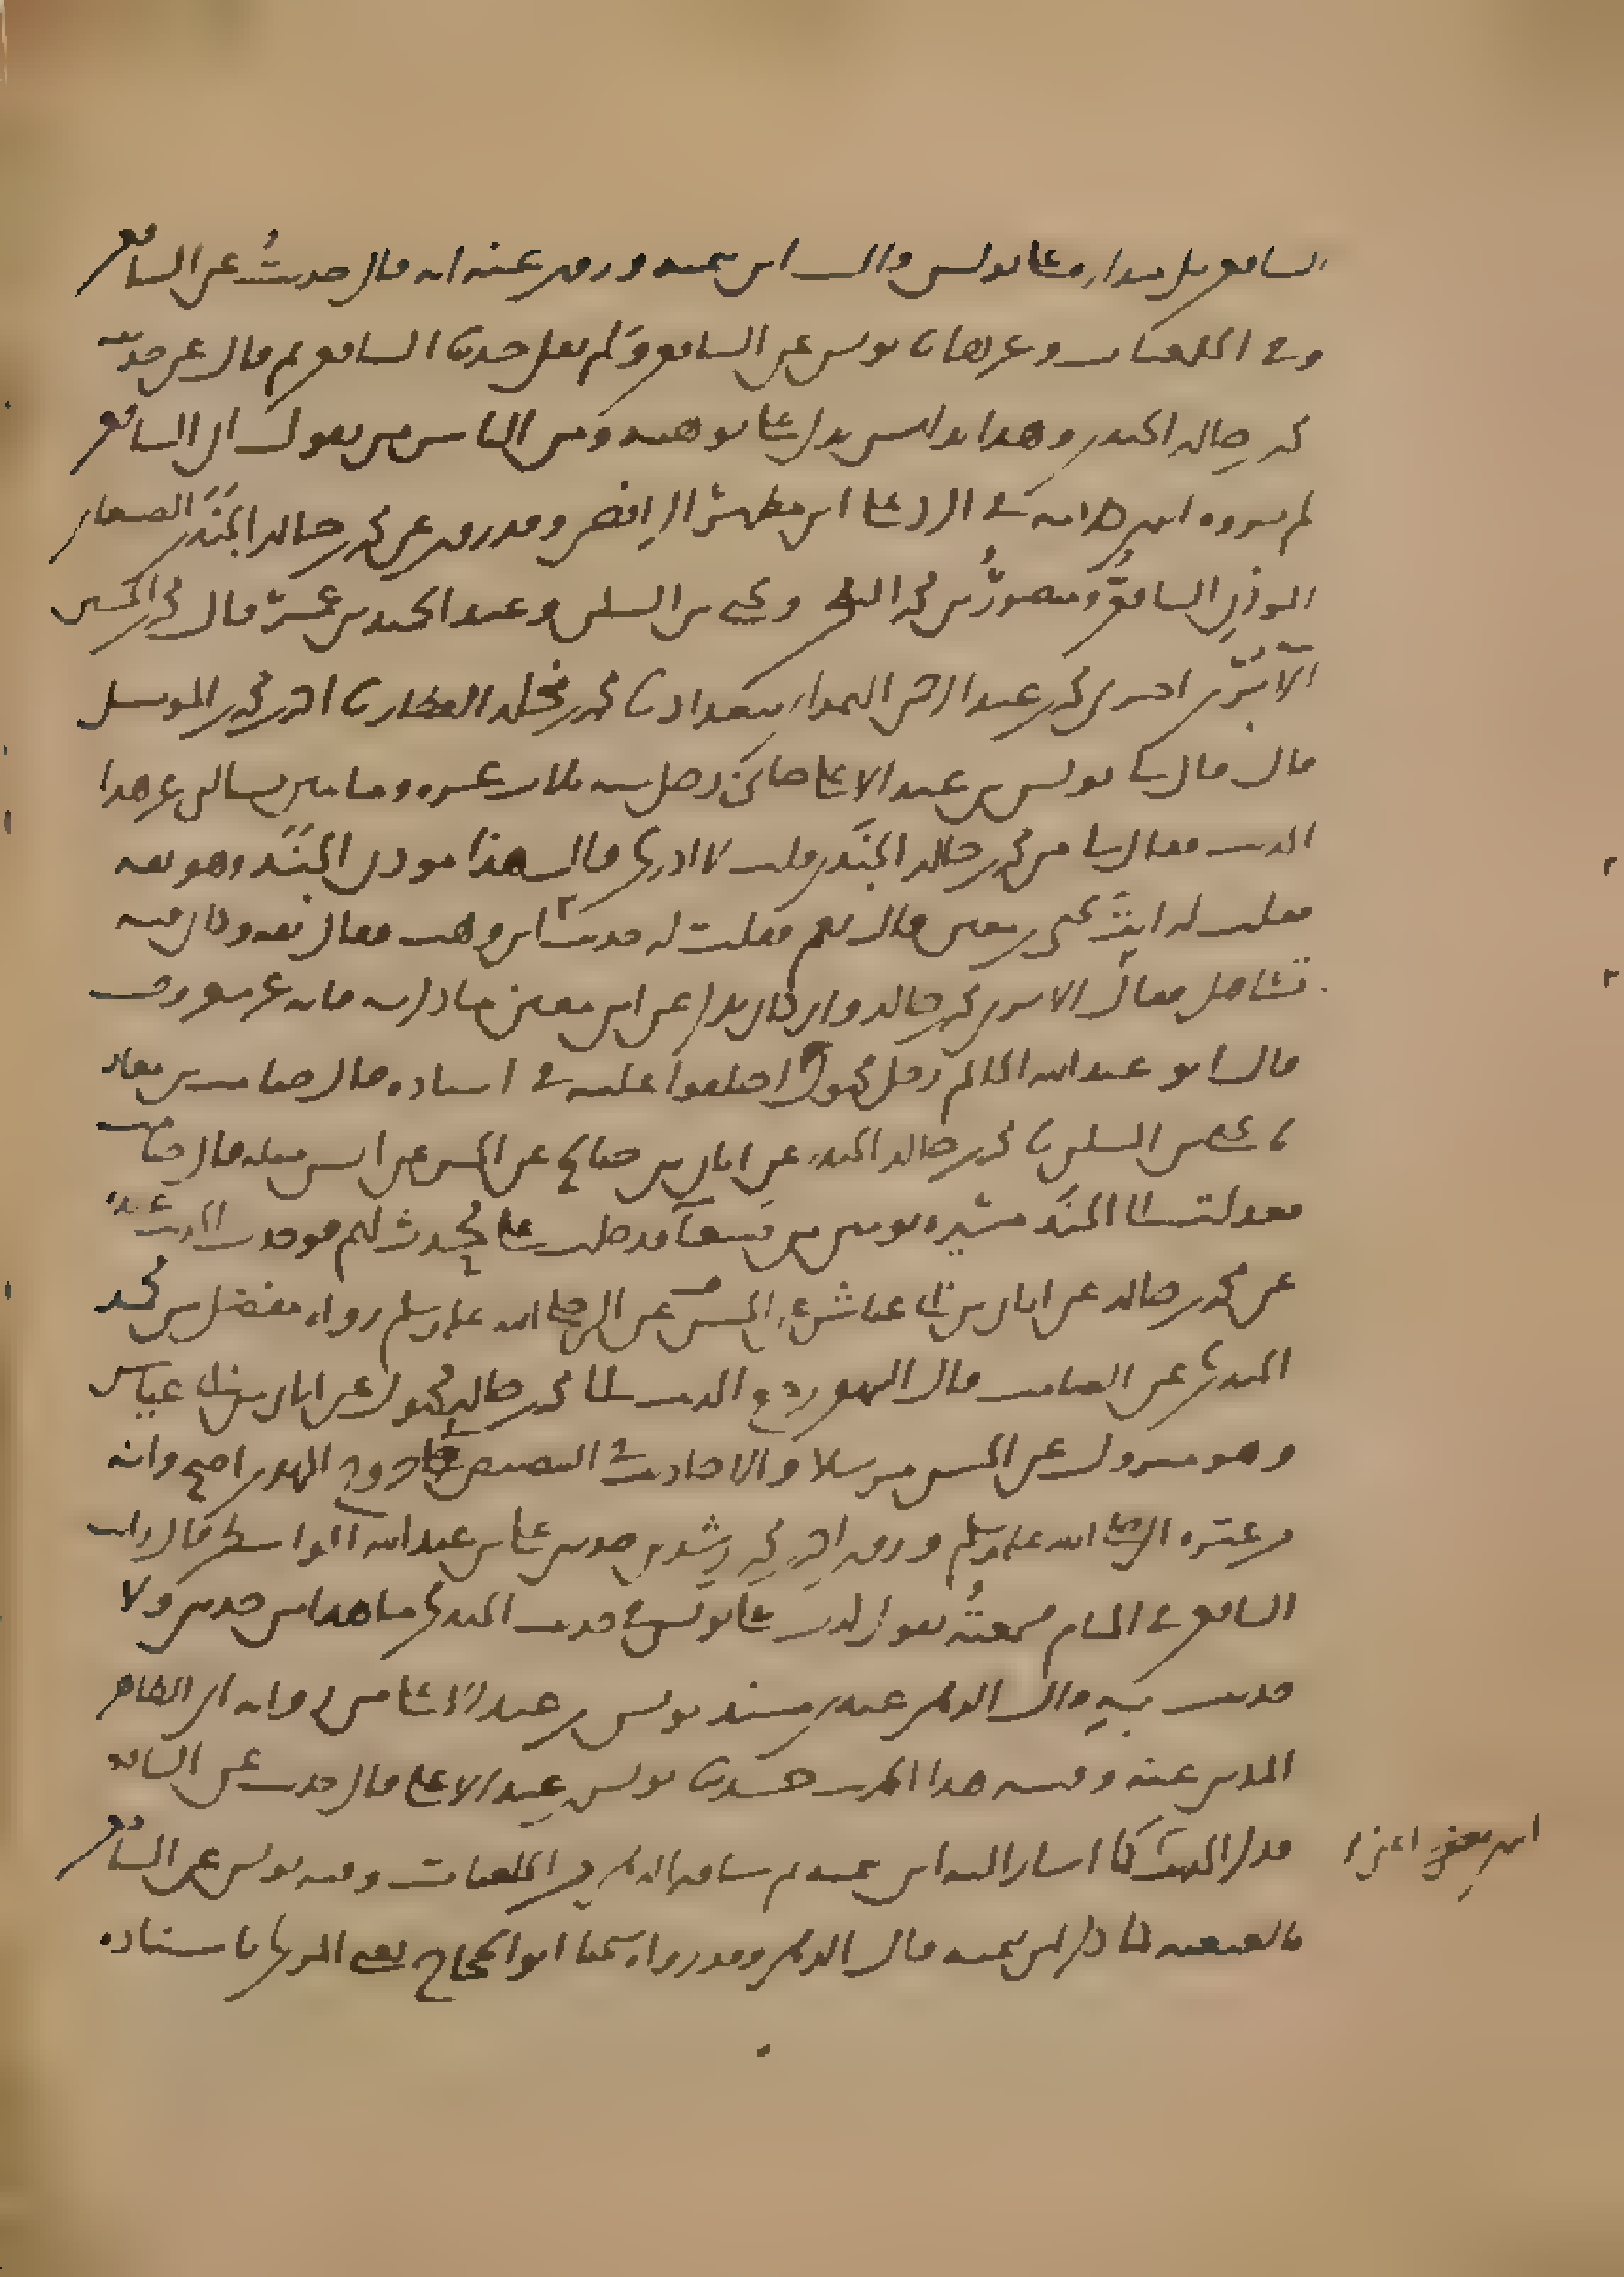 الشافعي بل مداره على يونس قال ابن تيمية وروى عنه انه قال حدثت عن الشافعي
وفي الخلعيات وغيرها نا يونس عن الشافعي ولم يقل حدثنا الشافعي ثم قال عن حديث
محمد بن خالد الجندي وهذا تدليس يدل على توهينه ومن الناس من يقول ان الشافعي
لم يروه في الرد على ابن مطهر الرافضي وقد روى عن محمد بن خالد الجندي الصغار
الموذن الشافعي ومنصور بن محمد البلخي ويحيى بن السكن وعبد الحميد بن عمر قال محمد بن الحسين
الآبري اخبرني محمد بن عبد الرحمن الهمداني ببغداد نا محمد بن مخلد العطار نا احمد بن محمد بن المومل
قال قال لنا يونس بن عبد الاعلى جاني رجل سنه ثلاث عشره وماتين يسالني عن هذا
الحديث فقال لنا من محمد بن خالد الجندي قلت لا ادري قال هذا موذن الجند وهو ثقه
فقلت له انت يحيى بن معين قال نعم فقلت له حديث ابن وهب فقال ثقه وكان فيه
تشاهل فقال الابري محمد بن خالد وان كان يذكر عن ابن معين ما ذكرته فانه غير معروف
قال ابو عبد الله الحاكم رجل مجهول اختلفوا عليه في اسناده قال صامت بن معاذ
نا يحيى بن السكن نا محمد بن خالد الجندي عن ابان بن صالح عن الحسن عن انس مثله قال صامت
فعدلت الى الجند مسيره يومين من صنعا فدخلت على محدث لهم فوجدت الحديث عنده
عن محمد بن خالد عن ابان بن ابي عياش عن الحسن عن النبي صلى الله عليه وسلم رواه مفضل بن محمد
الجندي عن الصامت قال البيهقي رجع الحديث الى محمد بن خالد مجهول عن ابان بن ابي عياش
وهو متروك عن الحسن مرسلا والاحاديث في التنصيص على خروج المهدي اصح وانه
من عترة النبي صلى الله عليه وسلم وروى احمد بن محمد بن رشدين حدثني علي بن عبد الله الواسطي قال رايت
الشافعي في المنام فسمعته يقول كذب علي يونس في حديث الجندي ما هذا من حديثي ولا
حدثت به قال الذهبي عندي مسند يونس بن عبد الاعلى من رواية ابي الطاهر
المديني عنه وفيه هذا الحديث حدثنا يونس بن عبد الاعلى قال حدثت عن الشافعي
فذكر الحديث كما اشار اليه ابن تيميه ثم ساقه الذهبي من الخلعيات وفيه يونس عن الشافعي
بالعنعنه كما ذكر ابن تيميه قال الذهبي وقد رواه شيخنا ابو الحجاج يعني المزي باسناده